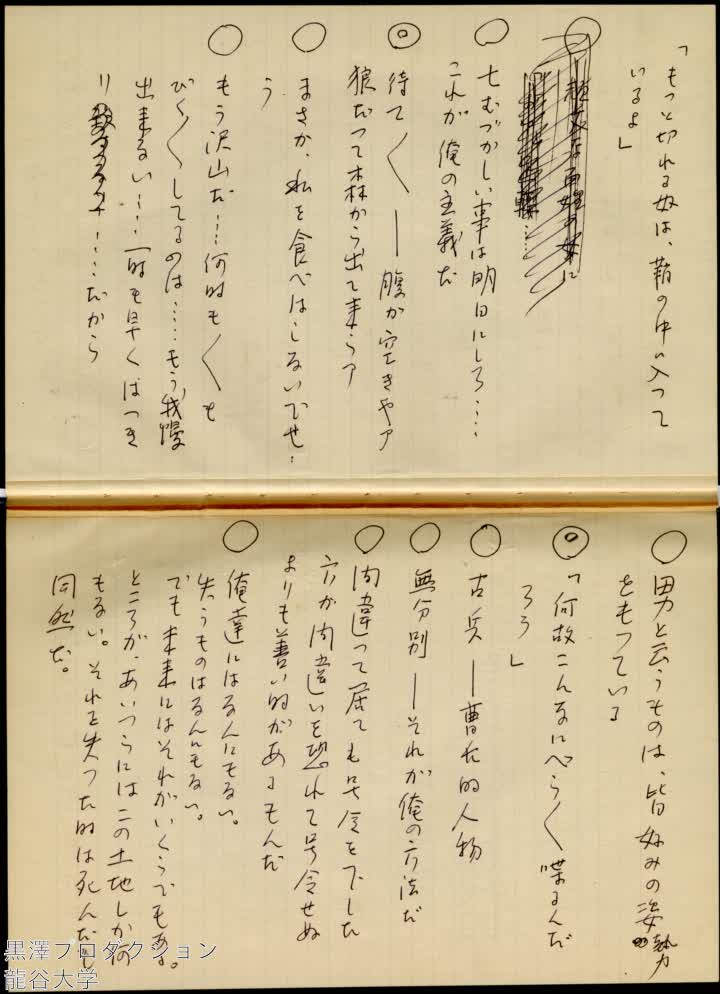 「もっと切れる奴は、鞘の中に入って
いるよ」
七むづかしい事は明日にしろ‥‥
これが俺の主義だ
待て〱 ― 腹が空きやア
狼だつて森から出て来らア
まさか、私を食べはしないでせ
う
もう沢山だ‥‥何時も〱も
びく〱してるのは‥‥もう我慢
出来ない‥‥一時も早くはつき
‥‥だから
男と云うものは、皆好みの姿勢
をもつている
「何故こんなにべら〱喋るんだ
ろう」
古兵 ― 曹長的人物
無分別 ― それが俺の方法だ
間違つて居ても号令を下した
方が間違いを恐れて号令せぬ
よりも善い時があるもんだ
俺達にはなんにもない。
失うものはなんにもない。
でも未来にはそれがいくらでもある。
ところが、あいつらにはこの土地しか何
もない。それを失つた時は死んだも
同然だ。
黒澤プロダクション
龍谷大学